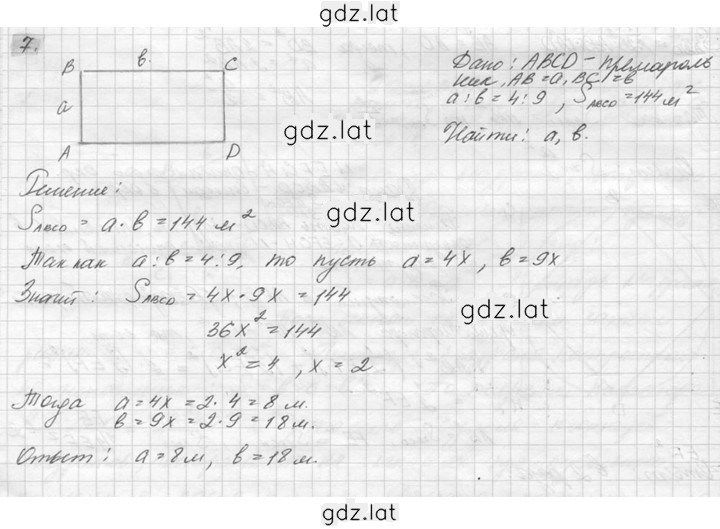 gdz.lat
7.
B в. C
a
A D
Дано: ABCD – прямауголь
ник, AB = a, BC = в
a : в = 4 : 9, S ABCD = 144 м²
gdz.lat
Найти: a, в.
Решение:
gdz.lat
S ABCD = a · в = 144 м²
Так как a : в = 4 : 9, то пусть a = 4x, в = 9x
Значит: S ABCD = 4x · 9x = 144
gdz.lat
36x² = 144
x² = 4, x = 2
Тогда a = 4x = 2 · 4 = 8 м.
в = 9x = 2 · 9 = 18 м.
Ответ: a = 8 м, в = 18 м.
gdz.lat